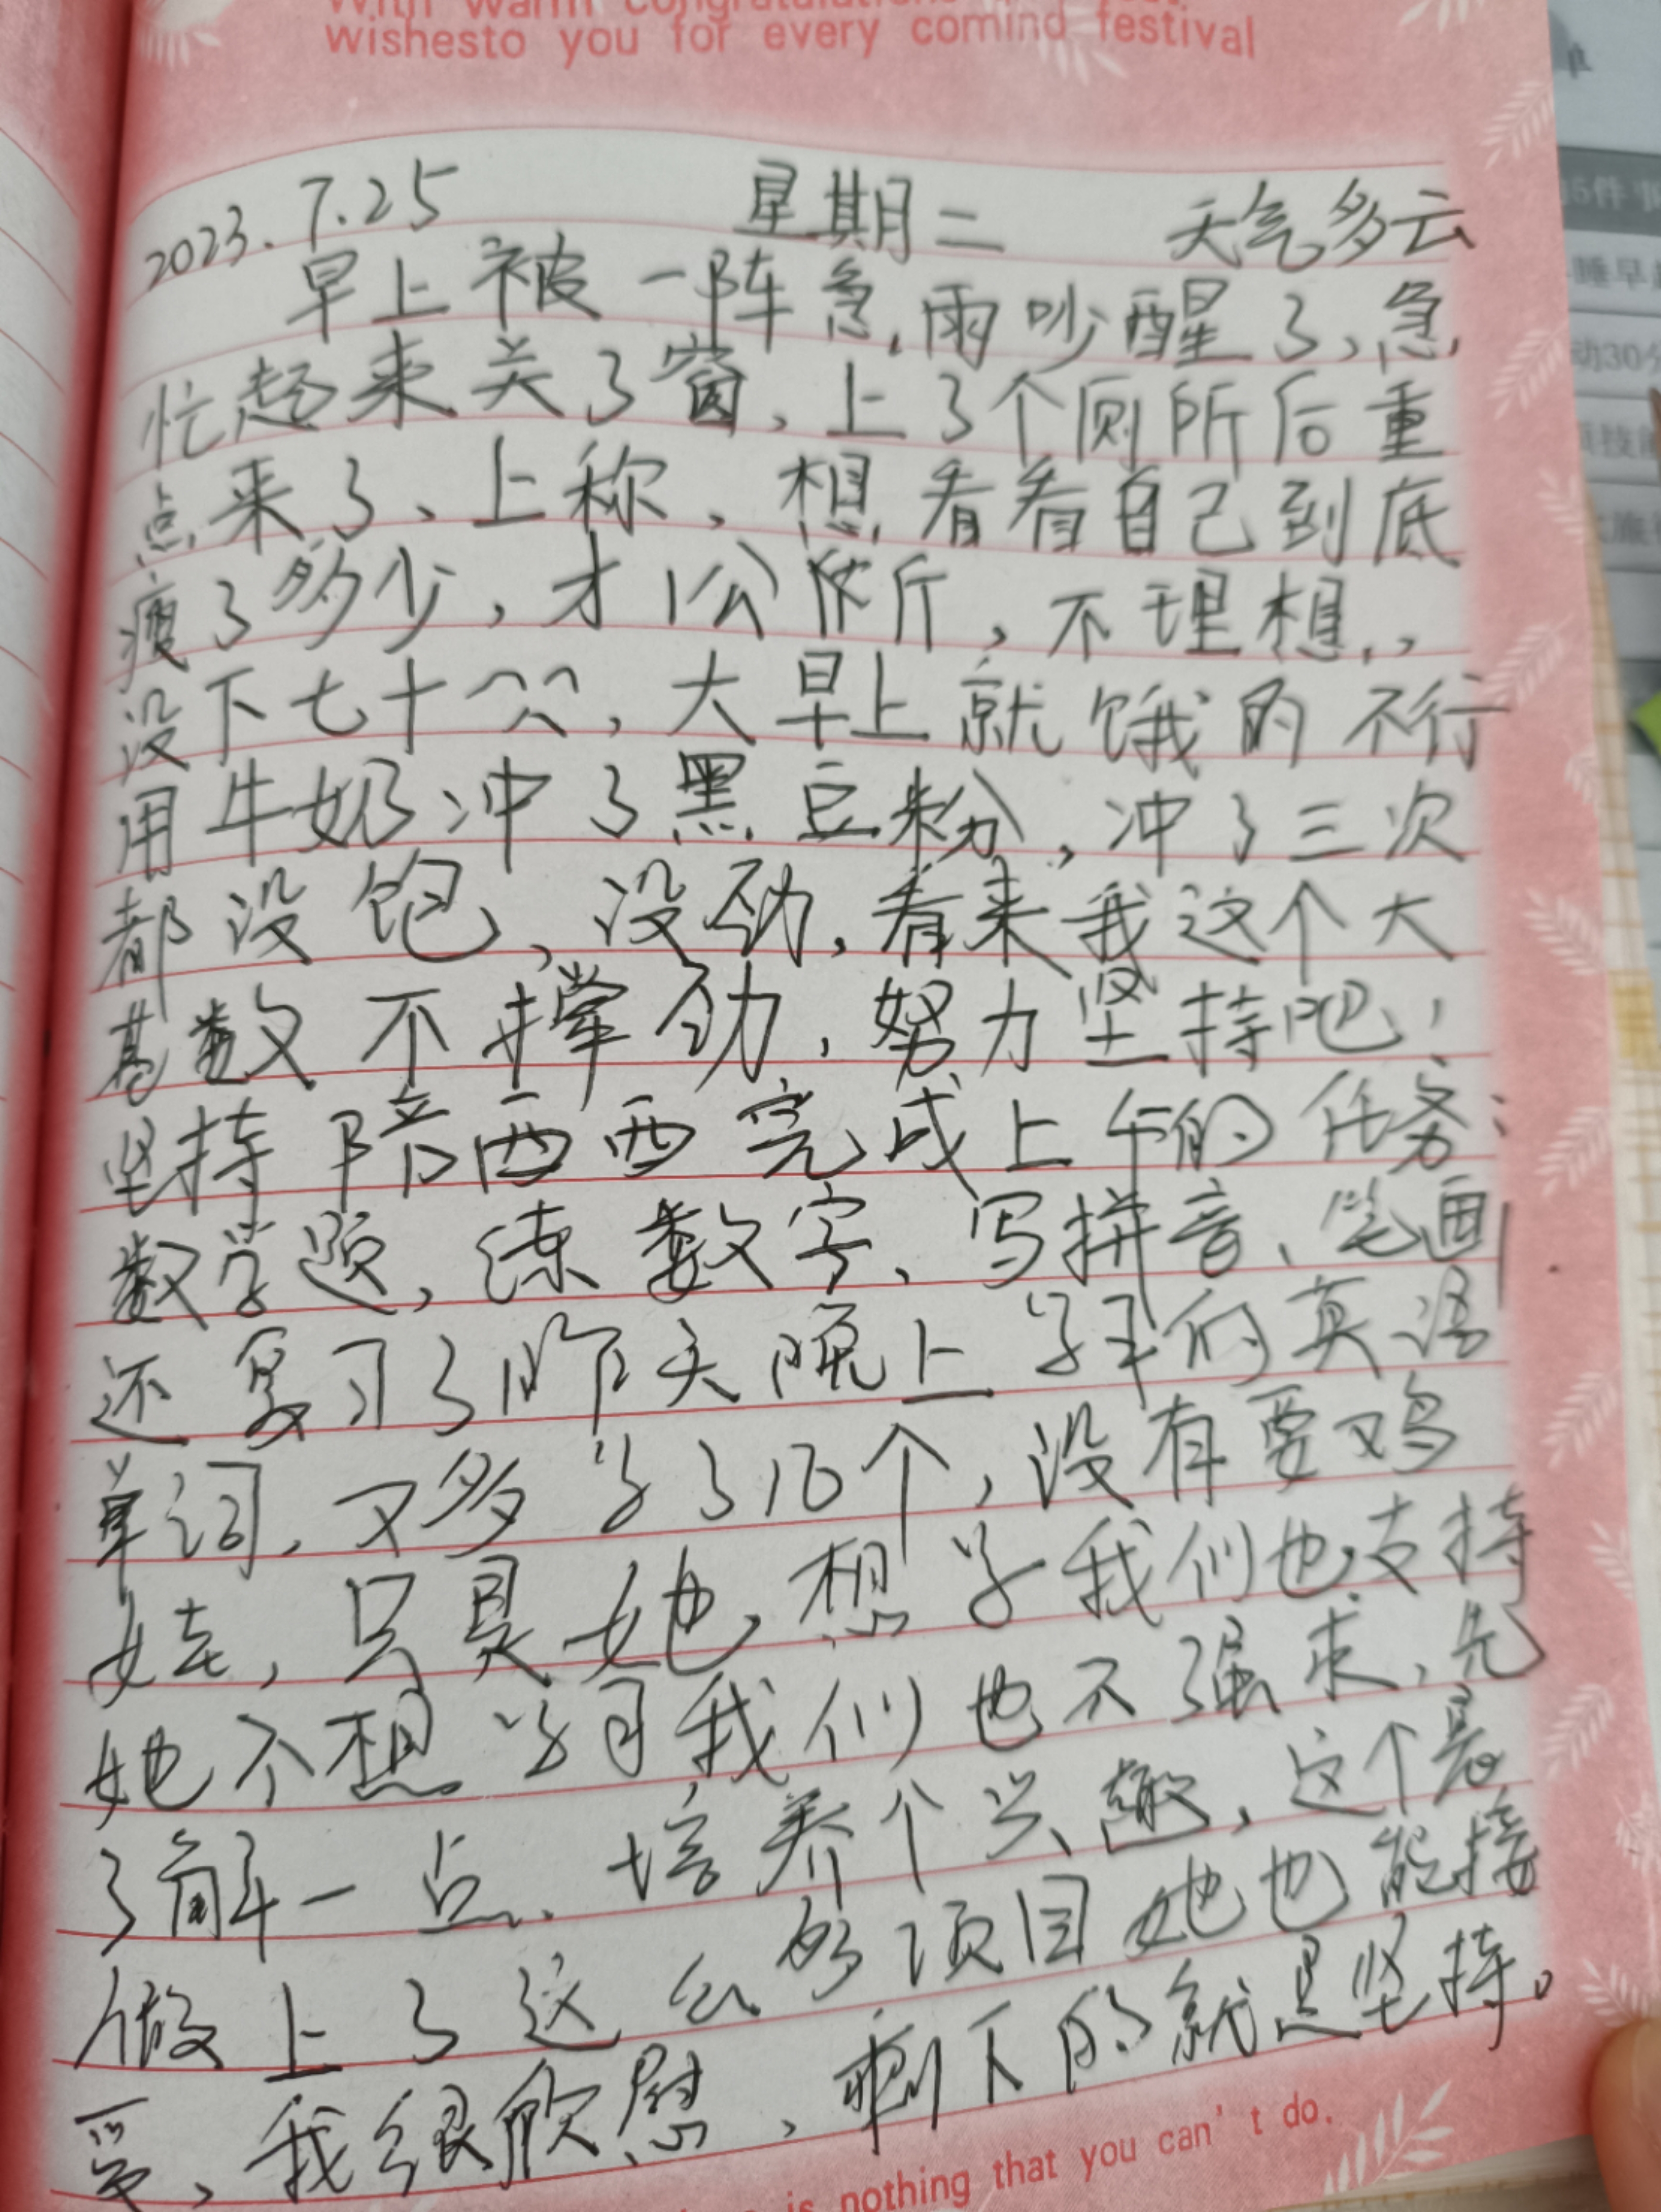 wishesto you for every comind festival
2023.7.25 星期二 天气多云
早上被一阵急雨吵醒了、急
忙起来关了窗，上了个厕所后重
点来了、上称，想看看自己到底
瘦了多少，才1公斤，不理想，
没下七十，大早上就饿的不行
用牛奶冲了黑豆粉，冲了三次
都没饱，没劲，看来我这个大
基数不撑劲，努力坚持吧，
坚持陪西西完成上午的任务：
数学题，练数字、写拼音、笔画
还复习了昨天晚上学的英语
单词，又多学了10个，没有要鸡
娃，只是她想学我们也支持
她不想学习我们也不强求，先
了解一点、培养个兴趣，这个暑
做上了这么多项目她也能接
受，我很欣慰，剩下的就是坚持。
is nothing that you can't do.